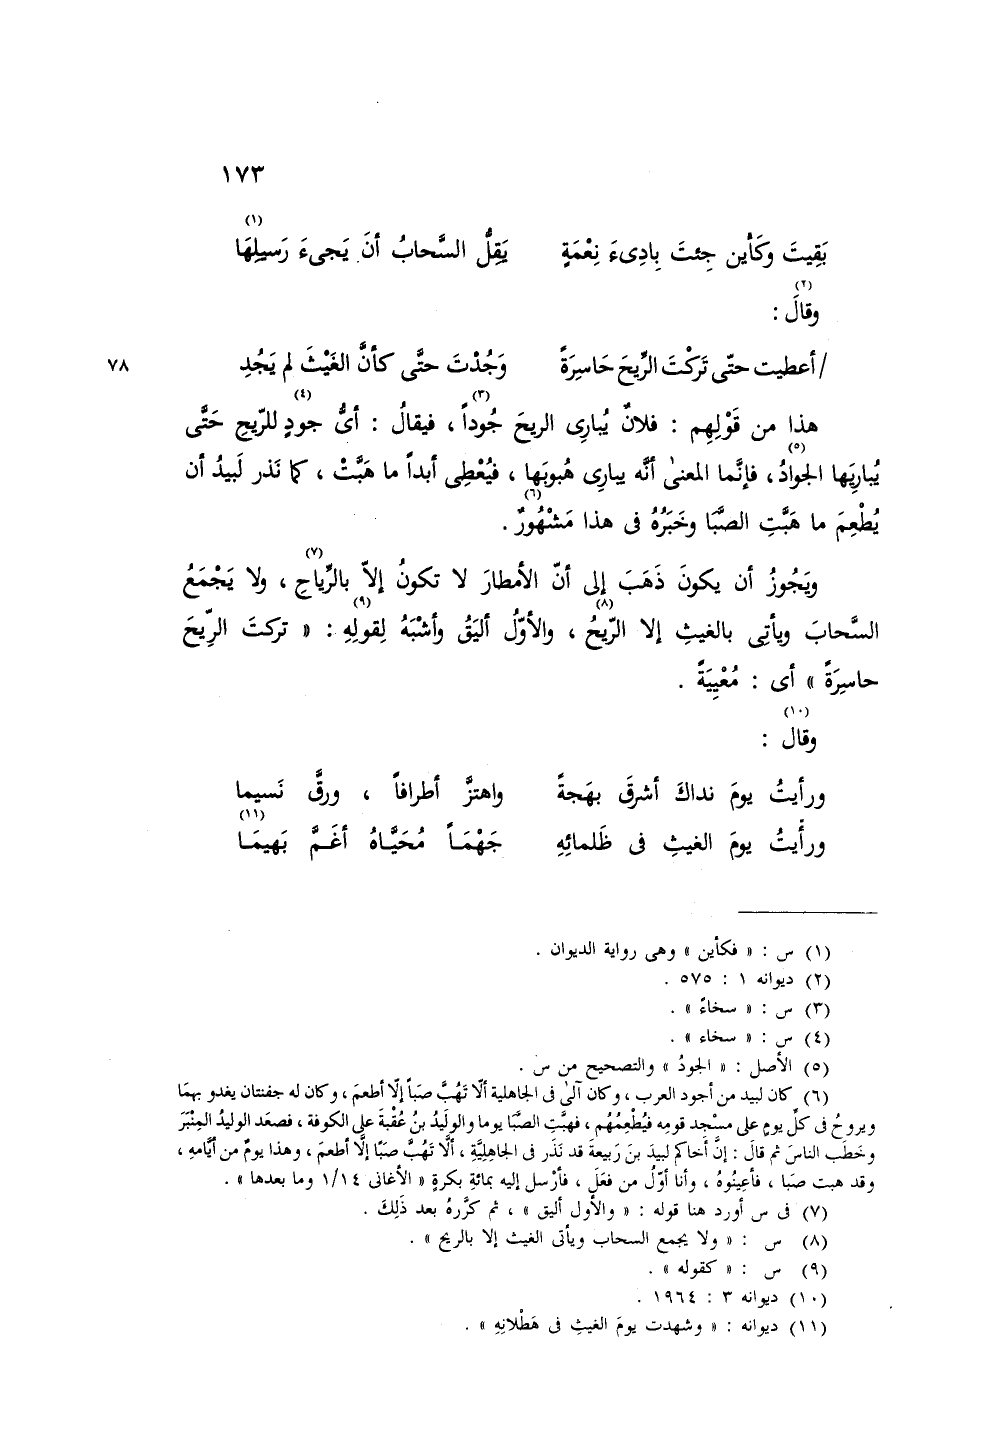 ١٧٣
بَقِيتَ وكَأَين جِئتَ بِادِىءَ نِعْمَةٍ يَقِلُّ السَّحابُ أنَ يَجىءَ رَسيلِهَا (١)
وقالَ (٢) :
/ أعطيت حتّى تَرَكْتَ الرِّيحَ حَاسِرَةً وَجُدْتَ حتَّى كأنَّ الغَيْثَ لم يَجُدِ ٧٨
هذا من قَوْلِهم : فلانٌ يُبارِى الريحَ جُوداً (٣) ، فيقالُ : أىُّ جودٍ (٤) للرّيحِ حَتَّى
يُبارِيَها الجوادُ (٥) ، فإنَّما المعنىٰ أنَّه يبارِى هُبوبَها ، فيُعْطِى أبداً ما هَبَّتْ ، كما نَذر لَبيدُ أن
يُطْعِمَ ما هَبَّتِ الصَّبَا وخَبَرُهُ فى هذا مَشْهُورٌ (٦) .
ويَجُوزُ أن يكونَ ذَهَبَ إلى أنّ الأمطارَ لا تكونُ إلاّ بالرِّياحِ (٧) ، ولا يَجْمَعُ
السَّحابَ ويأتِى بالغيثِ إلا الرّيحُ (٨) ، والأوّلُ أليَقُ وأشْبَهُ لِقولِهِ (٩) : « تركتَ الرِّيحَ
حاسِرَةً » أى : مُعْيِيَةً .
وقال (١٠) :
ورأيتُ يومَ نداكَ أشرقَ بهَجةً واهتزَّ أطرافاً ، ورقَّ نَسيما
ورأيتُ يومَ الغيثِ فى ظَلمائِهِ جَهْمَـاً مُحَيَّـاهُ أغَـمَّ بَهيمَـا (١١)
(١) س : « فكأين » وهى رواية الديوان .
(٢) ديوانه ١ : ٥٧٥ .
(٣) س : « سخاءً » .
(٤) س : « سخاء » .
(٥) الأصل : « الجودُ » والتصحيح من س .
(٦) كان لبيد من أجود العرب ، وكان آلىٰ فى الجاهلية ألّا تَهُبَّ صَباً إلّا أطعمَ ، وكان له جفنتان يغدو بهمَا
ويروحُ فى كلِّ يومٍ على مسْجد قومِه فيُطْعِمُهُم ، فهبَّتِ الصَّبَا يوما والوليدُ بنُ عُقْبةَ على الكوفة ، فصعَد الوليدُ المِنْبَرَ
وخَطَب الناسَ ثم قالَ : إنَّ أَخاكم لبيدَ بنَ رَبيعةَ قد نَذَر فى الجاهِليَّةِ ، ألَّا تَهُبَّ صَبًا إلَّا أطعمَ ، وهذا يومٌ من أيَّامهِ ،
وقد هبت صَبا ، فأعِينُوهُ ، وأنا أوّلُ من فعَلَ ، فأرْسل إليه بمائةِ بكرةٍ « الأغانى ١/١٤ وما بعدها » .
(٧) فى س أورد هنا قوله : « والأول أليق » ، ثم كرَّرهُ بعد ذَلِكَ .
(٨) س : « ولا يجمع السحاب ويأتى الغيث إلا بالريح » .
(٩) س : « كقوله » .
(١٠) ديوانه ٣ : ١٩٦٤ .
(١١) ديوانه : « وشهدت يومَ الغيثِ فى هَطْلانِهِ » .